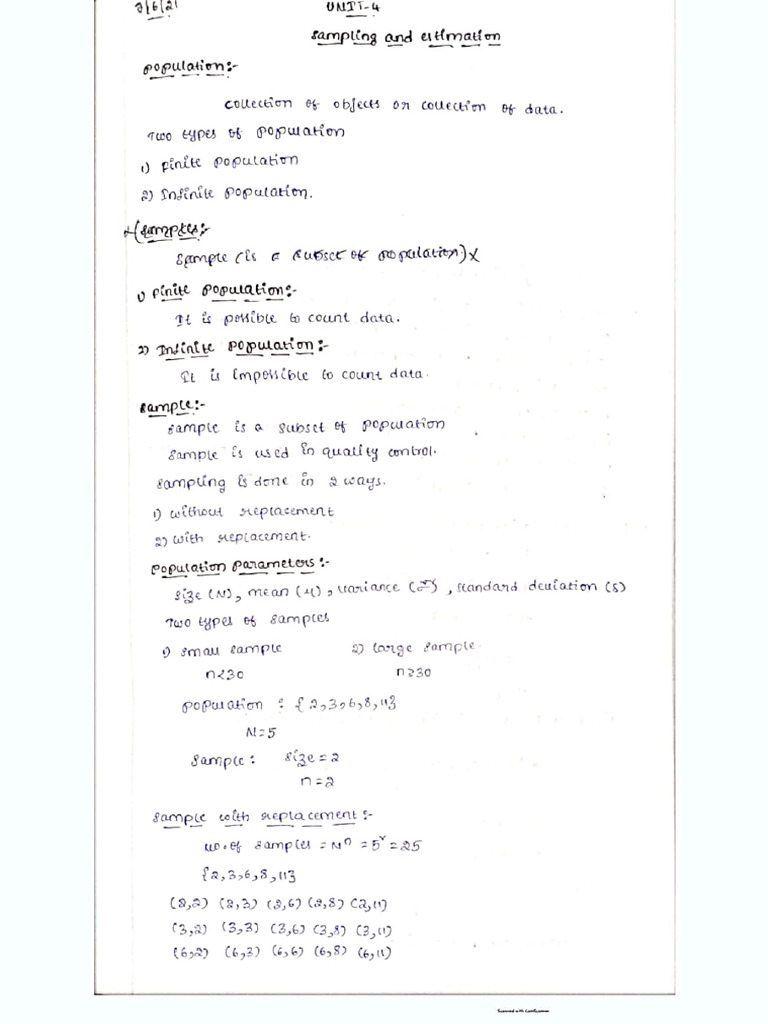 3/6/21 UNIT-4
Sampling and estimation
Population:-
Collection of objects or collection of data.
Two types of population
1) finite population
2) Infinite population.
x(samples:-
sample (is a subset of population)x
1) Finite population:-
It is possible to count data.
2) Infinite population:-
It is impossible to count data.
Sample:-
sample is a subset of population
sample is used in quality control.
Sampling is done in 2 ways.
1) without replacement
2) with replacement.
Population parameters:-
size (N), mean (μ), variance (σ²), standard deviation (s)
Two types of samples
1) small sample 2) large sample
n<30 n≥30
population : {2,3,6,8,11}
N=5
sample: size = 2
n=2
sample with replacement:-
no. of samples = Nⁿ = 5² = 25
{2,3,6,8,11}
(2,2) (2,3) (2,6) (2,8) (2,11)
(3,2) (3,3) (3,6) (3,8) (3,11)
(6,2) (6,3) (6,6) (6,8) (6,11)
Scanned with CamScanner